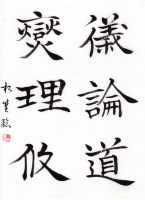 儀論道
燮理攸